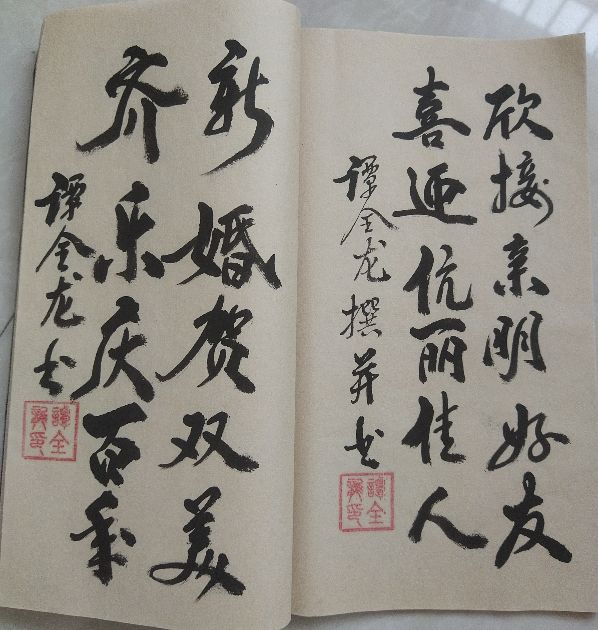 欣接亲朋好友
喜迎伉丽佳人
谭全龙撰并书
譚全龍印
新婚贺双美
齐乐庆百年
谭全龙书
譚全龍印